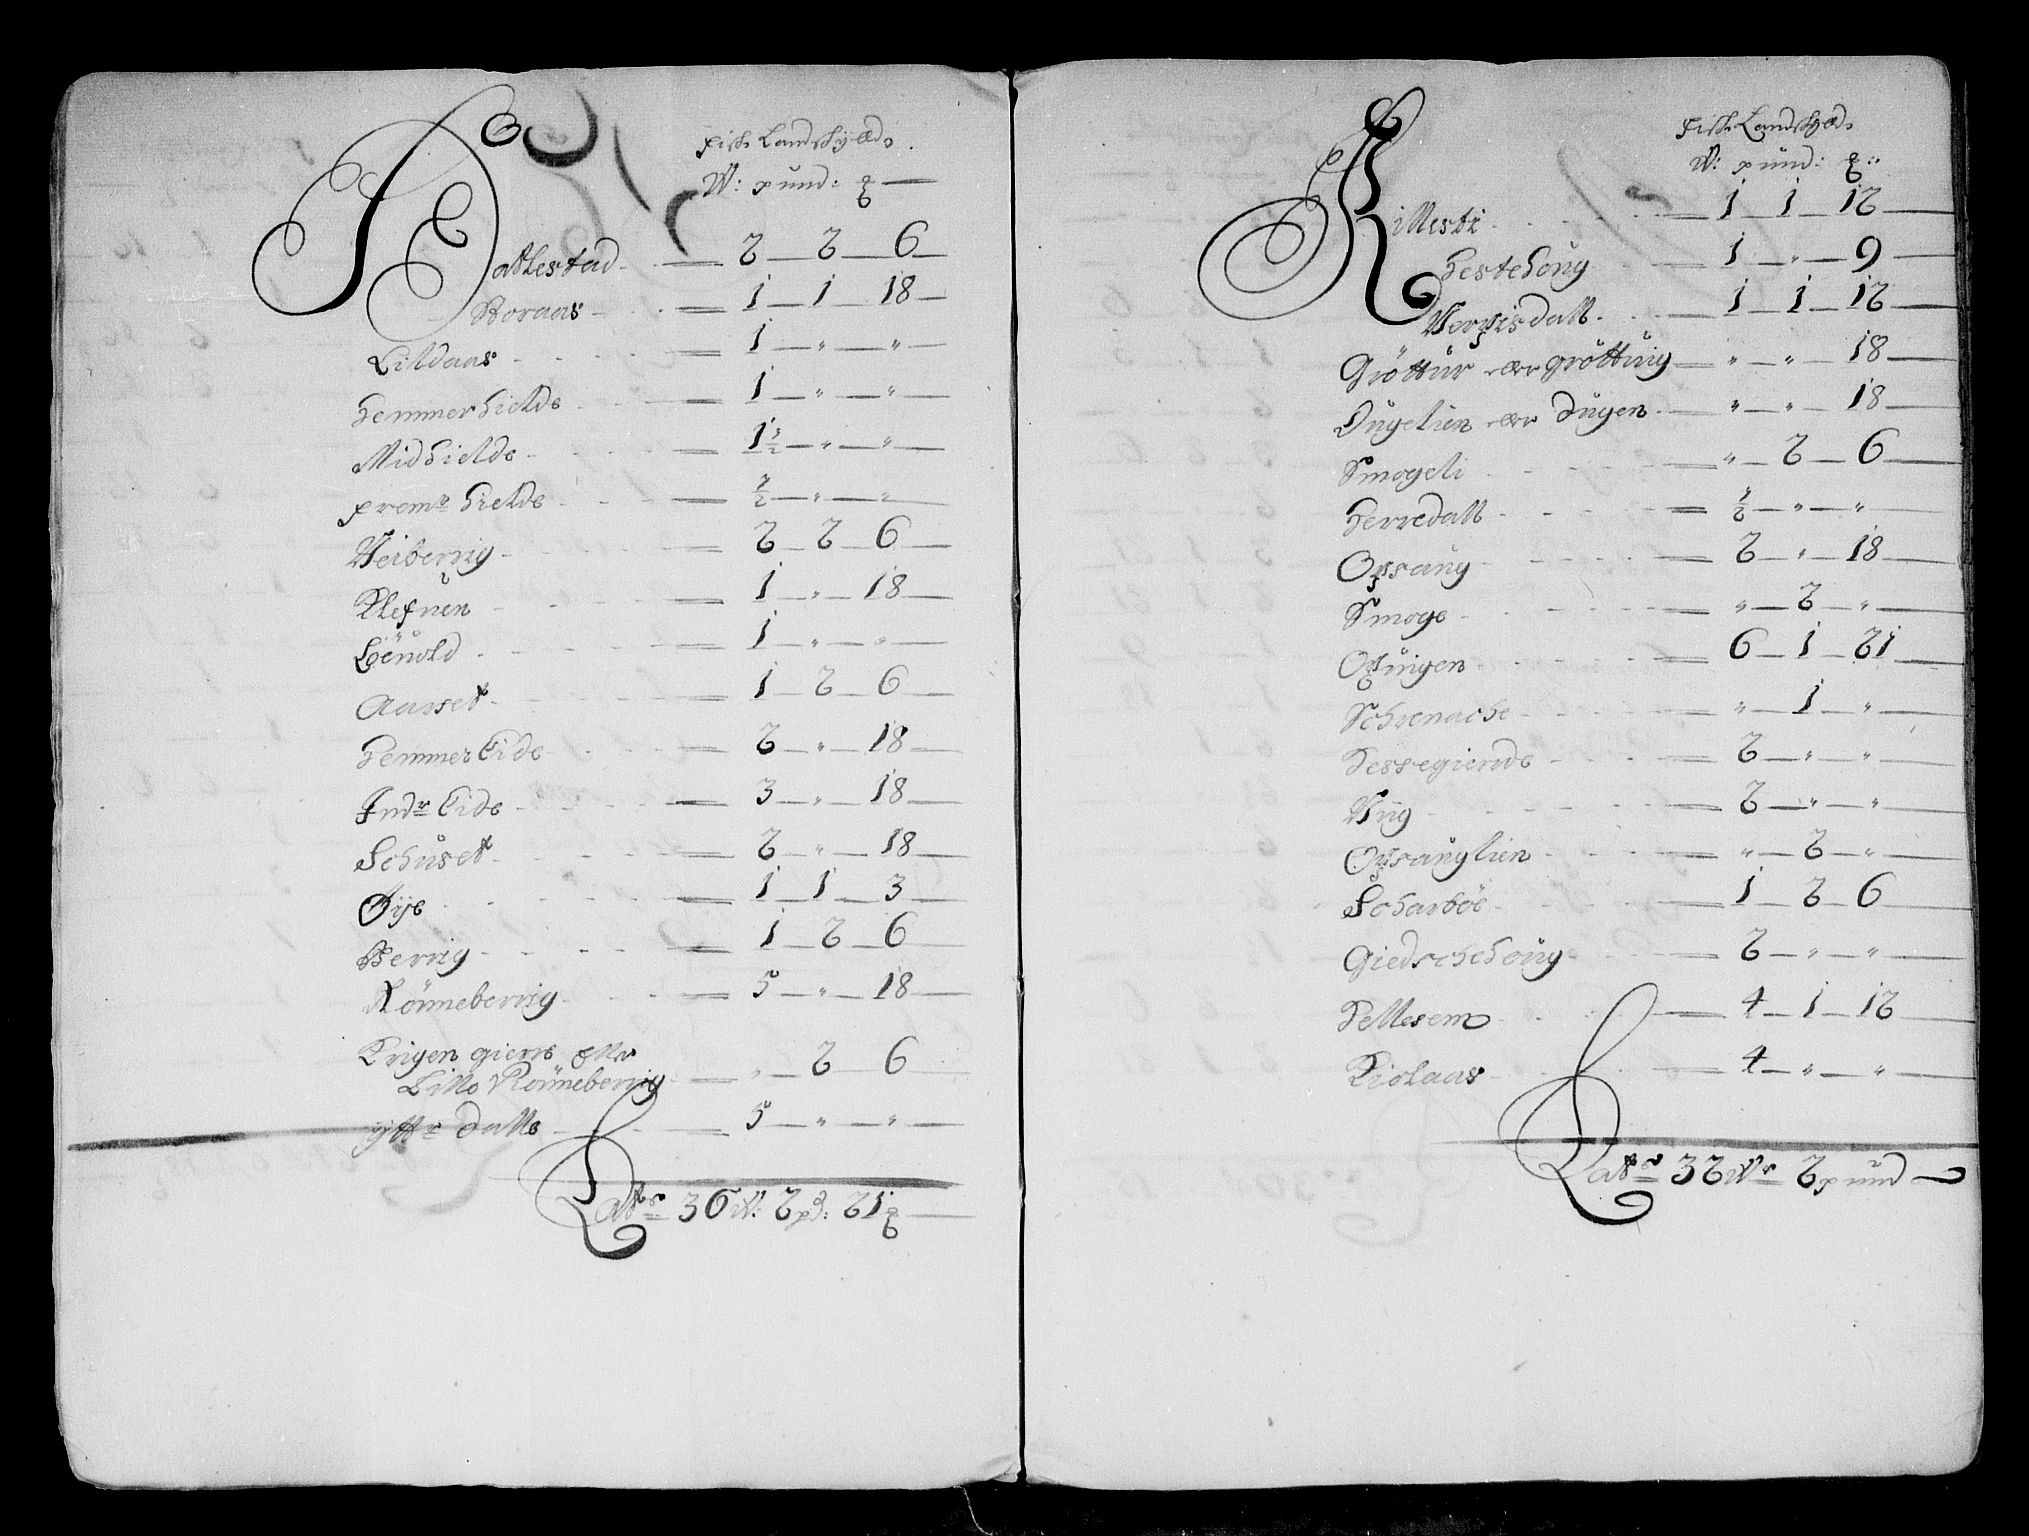 Fisk Landskyld.
W: pund: ℔
Hattlestad 2 2 6
Boraas 1 1 18
Lildaas 1 " "
Hemmerhielde 1 " "
Midhielde 1½ " "
Fremr hielde ½ " "
Weiberrig 2 2 6
Klefuen 1 " 18
Löeuold 1 " "
Aarset 1 2 6
Hemmer Eide 2 " 18
Indr Eide 3 " 18
Schuset 2 " 18
Öye 1 1 3
Berrig 1 2 6
Rönneberrig 5 " 18
Krigen gierne eller
Lille Rönneberrig " 2 6
ytter Dalle 5 " "
Lats 36 W: 2 pd: 21 ℔
Fisk Landskyld
W: pund: ℔:
Rillesti 1 1 12
Hestehoug 1 " 9
Verpisdall 1 1 12
Gröttur eller gröttung " " 18
Dugelien eller Dugen " " 18
Smogeli " 2 6
Herredall ½ " "
Opsaug 2 " 18
Smoge " 2 "
Opuigen 6 1 21
Schrenache " 1 "
Hessegierde 2 " "
Viig 2 " "
Opsauglien " 2 "
Scharböe 1 2 6
Giedschehoug 2 " "
Hellesem 4 1 12
Kiolaas 4 " "
Lats 32 Wr 2 pund